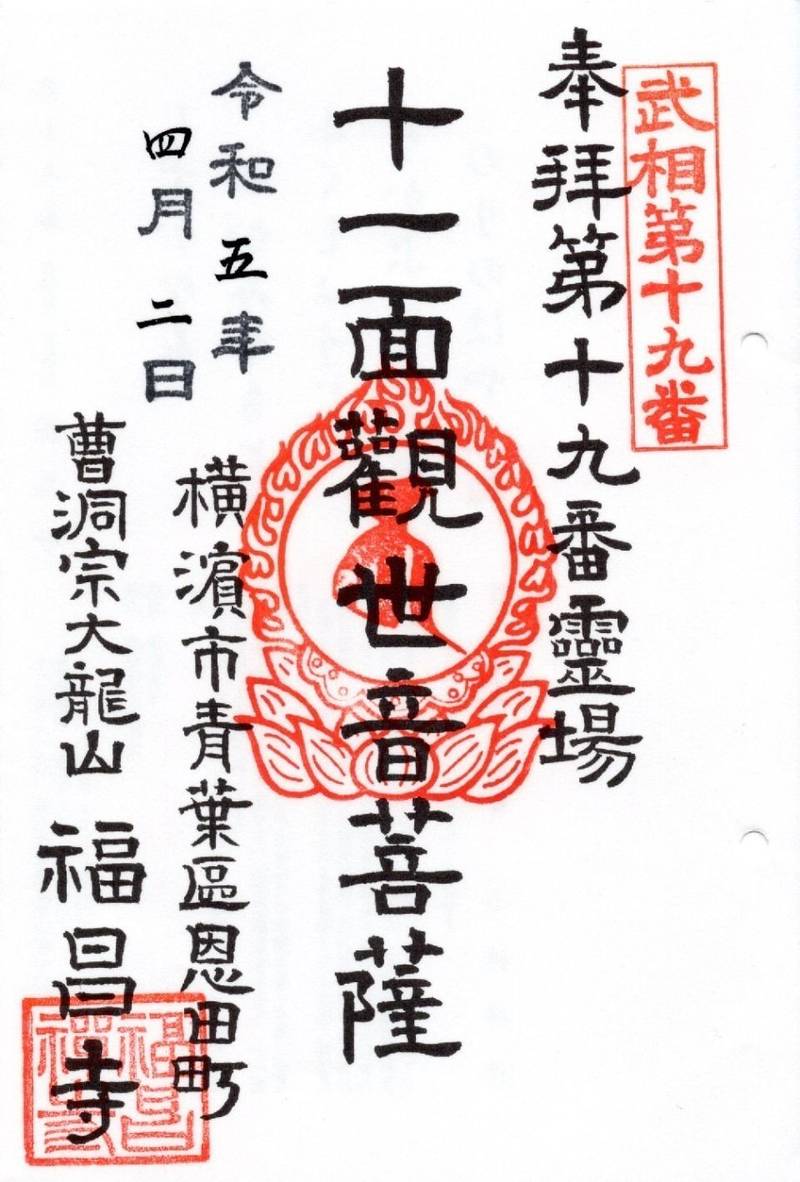 武相第十九番
奉拜第十九番靈場
十一面觀世音菩薩
令和五年
四月二日
橫濱市青葉區恩田町
曹洞宗大龍山
福昌寺
福昌禪寺